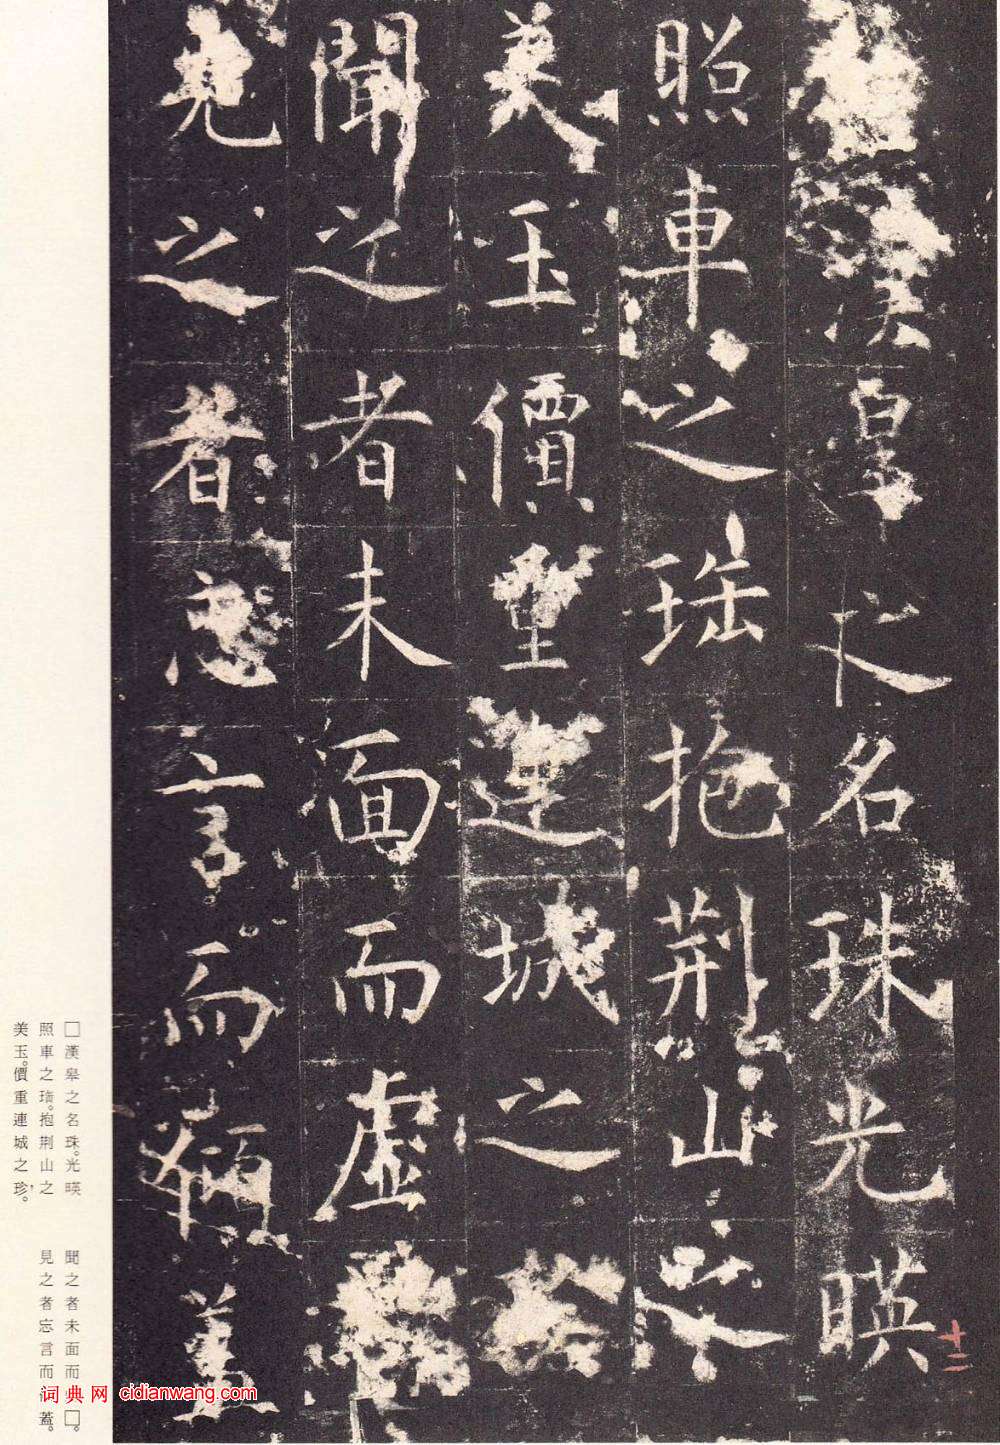 漢皋之名珠光暎
照車之瑎抱荆山之
美玉價重連城之
聞之者未面而虛
見之者忘言而傾蓋
十二
□漢皋之名珠。光暎
照車之瑎。抱荆山之
美玉。價重連城之珍。
聞之者未面而□。
見之者忘言而蓋。
词典网 cidianwang.com